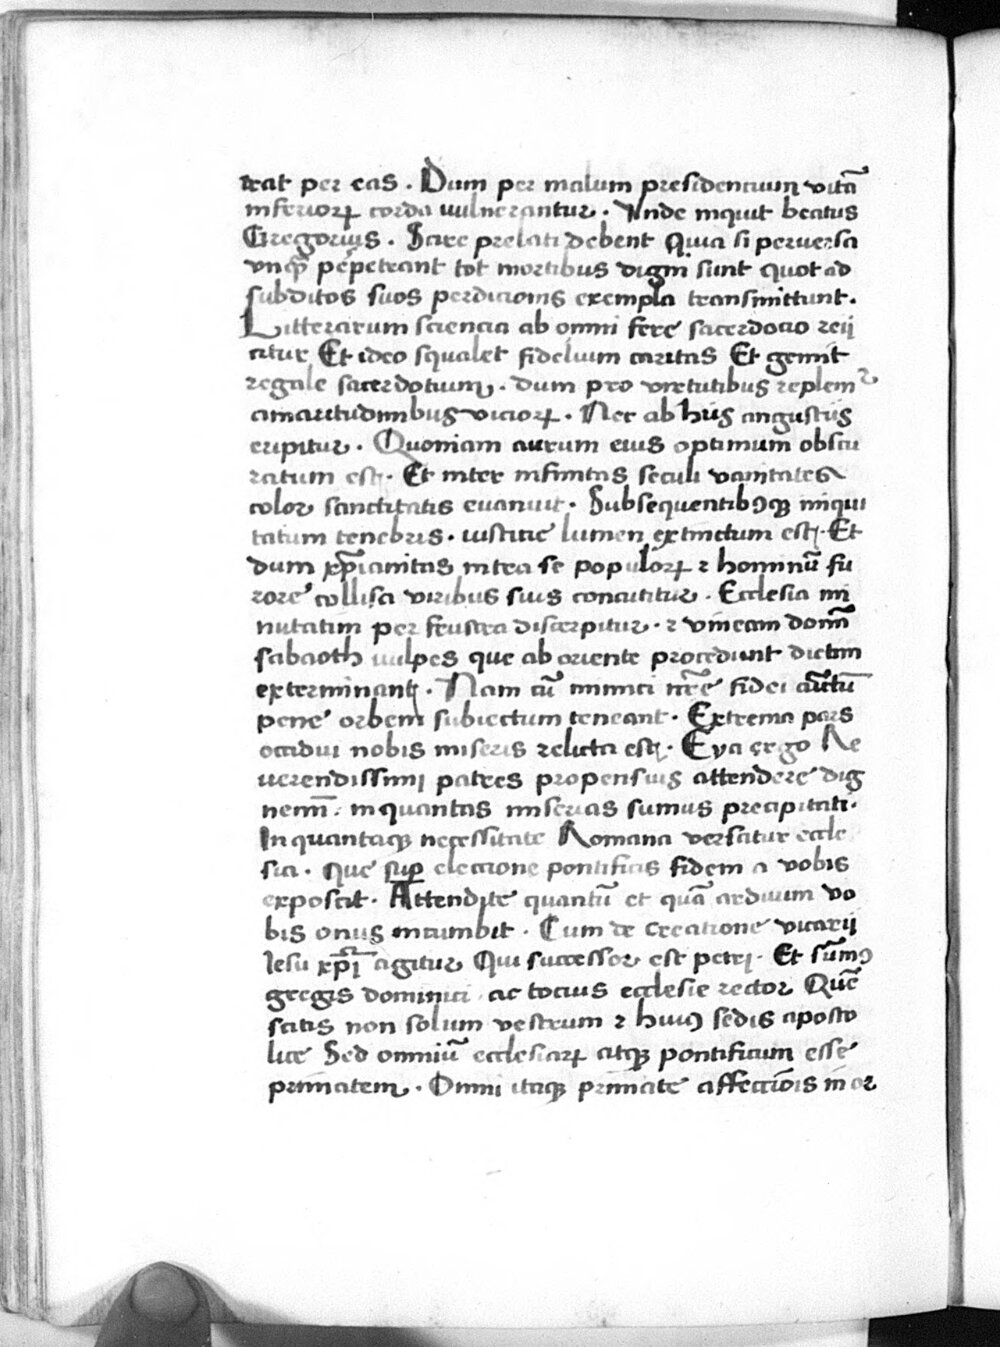 trat per eas . Dum per malum presidencium vitã
inferioꝝ corda vulnerantur . Vnde inquit beatus
Gregorius . Scire prelati debent Quia si peruersa
vnqȝ perpetrant tot mortibus digni sunt quot ad
subditos suos perdicionis exempla transmittunt .
Litterarum sciencia ab omni fere sacerdocio reij
citur Et ideo squalet fidelium caritas Et gemit
regale sacerdotium . dum pro virtutibus replem²
amaritudinibus vicioꝝ . Nec ab hijs angustijs
eripitur . Quoniam aurum eius optimum obscu
ratum est . Et inter infinitas seculi vanitates
color sanctitatis euanuit . Subsequentibꝯqȝ iniqui
tatum tenebris . iusticie lumen extinctum est . Et
dum xp̃ianitas intra se populoꝝ ⁊ hominũ fu
rore collisa viribus suis concutitur . Ecclesia mi
nutatim per frustra discerpitur . ⁊ vineam domĩ
sabaoth vulpes que ab oriente procedunt dietim
exterminant . Nam cũ inimici nr̃e fidei cũctũ
pene orbem subiectum teneant . Extrema pars
occidui nobis miseris relicta est . Eya ergo Re
uerendissimi patres propensius attendere dig
nemĩ : in quantas miserias sumus precipitati .
In quantaqȝ necessitate Romana versatur eccle
sia . Que sup̱ eleccione pontificis fidem a vobis
exposcit . Attendite quantũ et quã arduum vo
bis onus incumbit . Cum de creatione vicarij
Iesu xp̃i agitur Qui successor est petri . Et sũmꝯ
gregis dominici ac tocius ecclesie rector Quẽ
scitis non solum vestrum ⁊ huiꝯ sedis aposto
lice Sed omniũ ecclesiaꝝ atqȝ pontificum esse
primatem . Omni itaqȝ priuate affecciõis in or